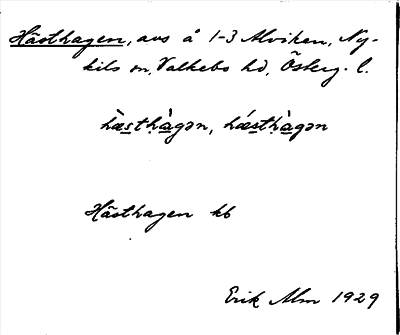 Hästhagen, avs å 1-3 Alviken, Ny-
kils sn, Valkebo hd, Österg. l.
hæ̀sthàgən, hǽsthàgən
Hästhagen kb
Erik Alm 1929